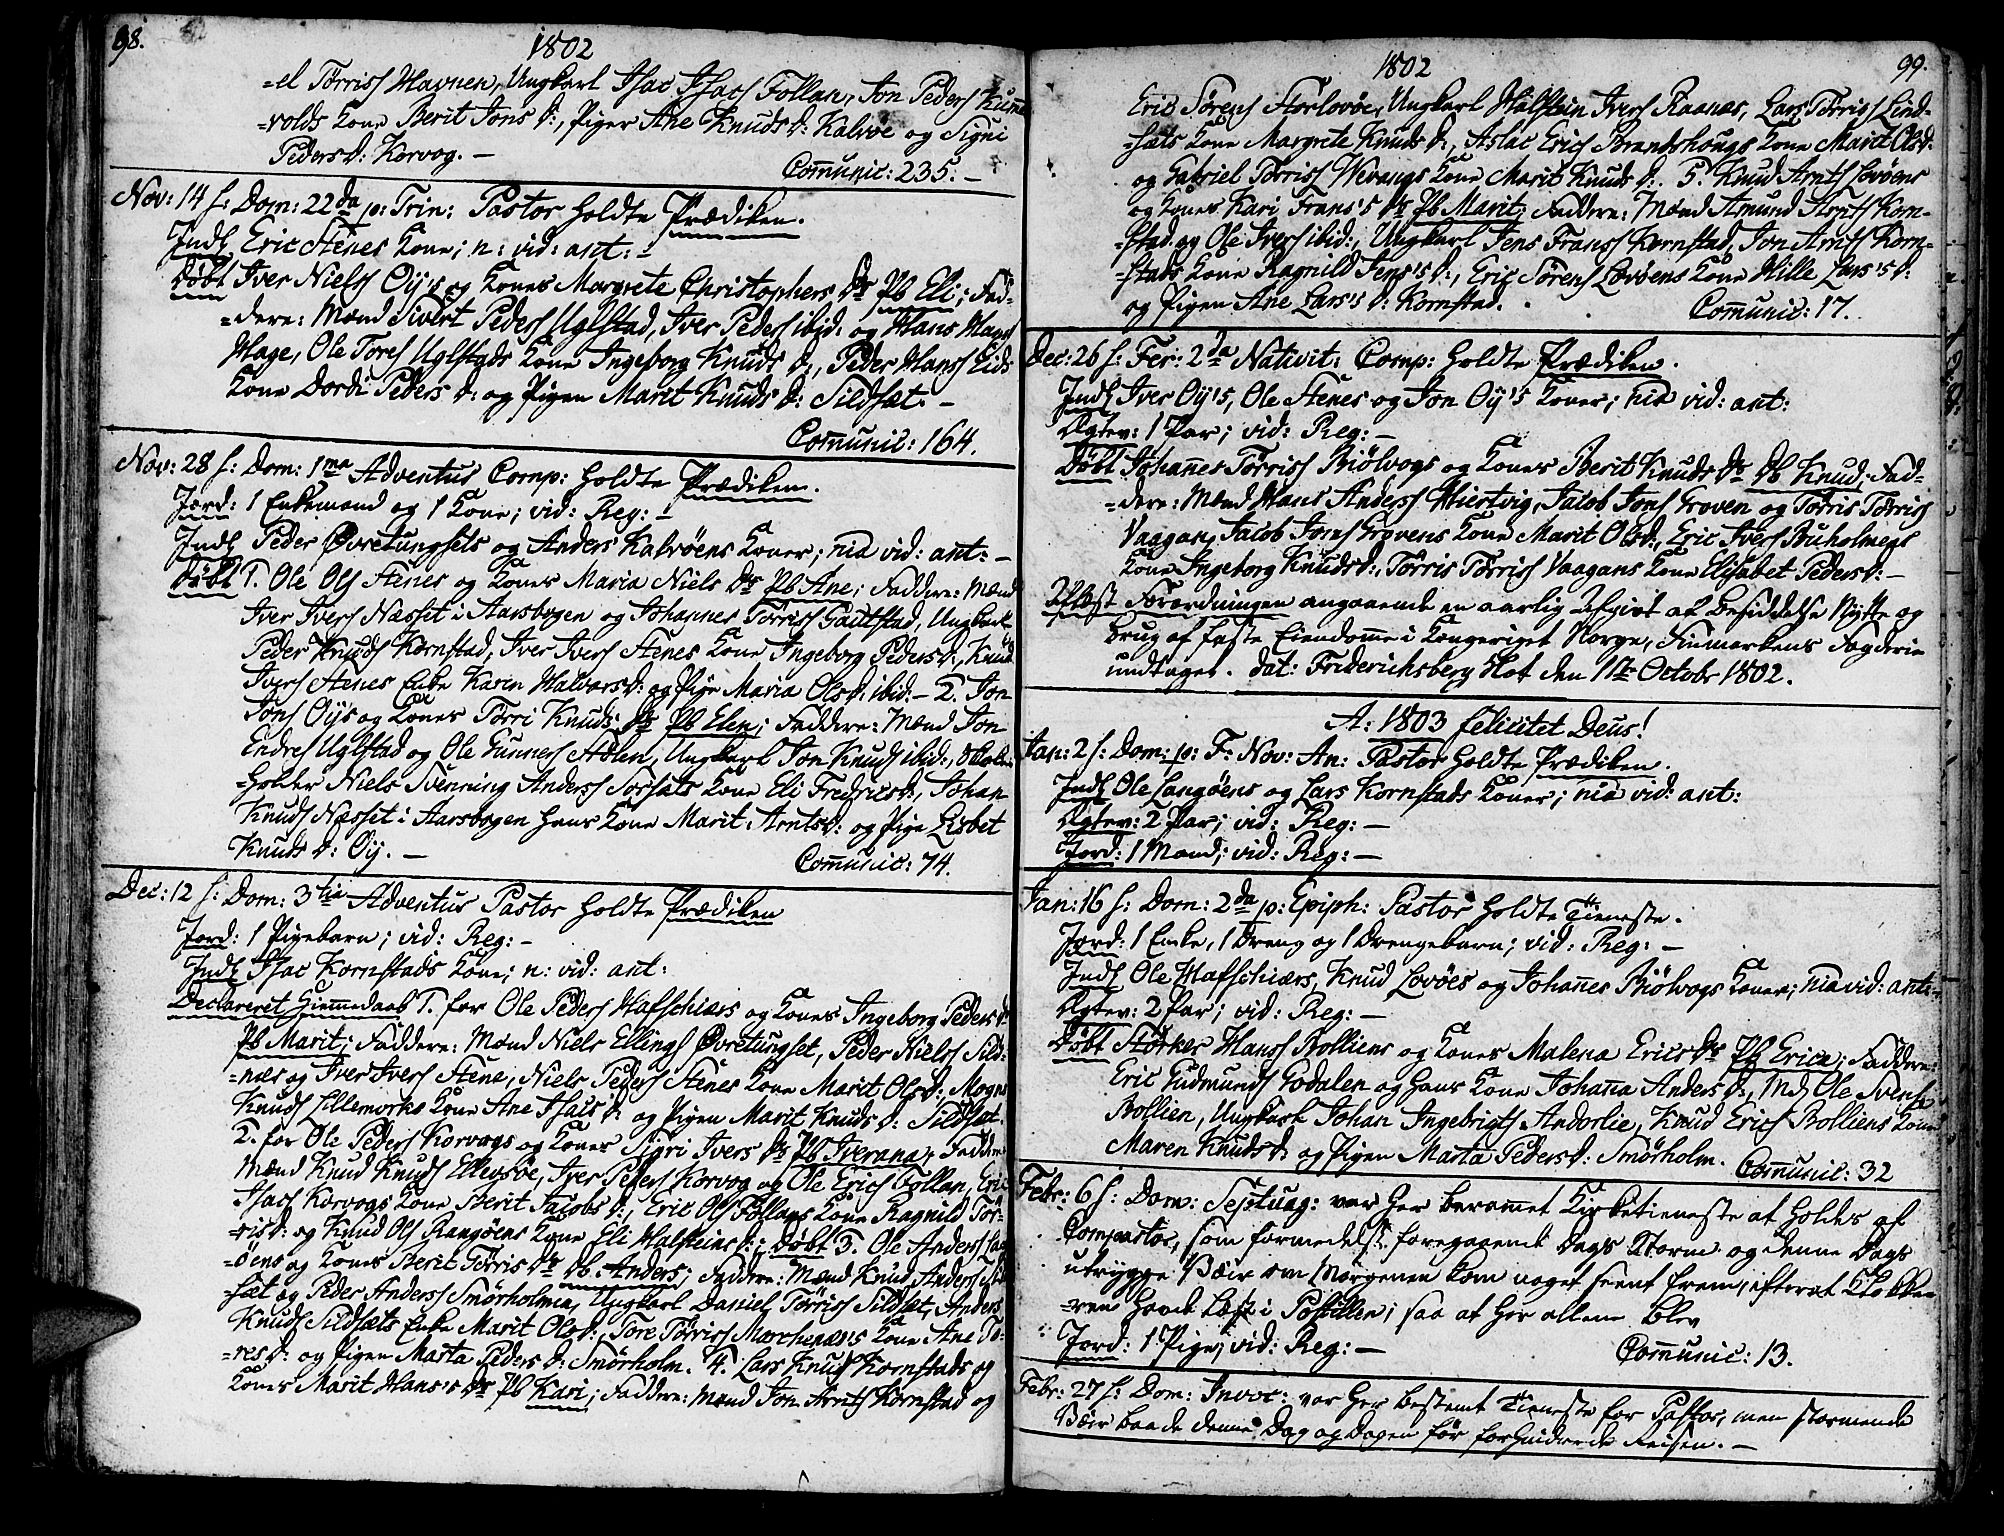 98.
1802
=el Tørriss Havnen, Ungkarl Isac Isacs Follan, Jon Peders Kune
=volds Kone Berit Jons d:, Piger Ane Knuds d: Kalvøe og Signi
Peders d: Korvog. —
Com̅unic: 235. —
Nov: 14 s: Dom: 22da p: Trin: Pastor holdte Prædiken.
Indl Eric Stenes Kone; n: vid: ant: —
Døbt Iver Niels Oÿ's og Kones Margrete Christophers Dr Pb Eli; Fad-
=dere: Mænd Sivert Peders Uglstad, Iver Peders ibid: og Hans Hans
Hage, Ole Tores Uglstads Kone Ingeborg Knuds d:, Peder Hans Eids
Kone Dordi Peders d: og Pigen Marit Knuds d: Sildsæt. —
Com̅unic: 164.
Nov: 28 s: Dom: 1ma Adventus Comp: holdte Prædiken.
Jord: 1 Enkemand og 1 Kone; vid: Reg: —
Indl Peder Øvretungsets og Anders Kalvøens Koner; nia vid: ant: —
Døbt 1. Ole Ols Stenes og Kones Maria Niels Dr Pb Ane; Faddere: Mænd
Iver Ivers Næsset i Aarsbogen og Johannes Tørriss Gautstad, Ungkarl
Peder Knuds Kornstad, Iver Ivers Stenes Kone Ingeborg Peders d:, Knud
Ivers Stenes Enke Karen Halvors d: og Pige Maria Ols d: ibid: — 2. Jon
Jons Oÿs og Kones Tørri Knuds Dr Pb Elen; Faddere: Mænd Jon
Endres Uglstad og Ole Gunners Stølen, Ungkarl Jon Knuds ibid:, Skole-
=holder Niels Svenning Anders Sorsæts Kone Eli Fredrics d:, Johan
Knuds Næsset i Aarsbogen hans Kone Marit Arnts d: og Pige Lisbet
Knuds d: Oÿ. —
Com̅unic: 74.
Dec: 12 s: Dom: 3tia Adventus Pastor holdte Prædiken
Jord: 1 Pigebarn; vid: Reg: —
Indl Isac Kornstads Kone; n: vid: ant:
Declareret Hiem̅edaab 1. for Ole Peders Hafschiærs og Kones Ingeborg Peders d:
Pb Marit; Faddere: Mænd Niels Ellings Øvretungset, Peder Niels Sild-
=næs og Iver Ivers Stene, Niels Peders Stenes Kone Marit Ols d:, Mogns
Knuds Lillemorks Kone Ane Isacs d: og Pigen Marit Knuds d: Sildsæt.
2. for Ole Peders Korvogs og Kones Sigri Ivers Dr Pb Iverana; Faddere
Mænd Knud Knuds Ellevsøe, Iver Peders Korvog og Ole Erics Follan, Eric
Isacs Korvogs Kone Berit Jacobs d:, Eric Ols Follans Kone Ragnild Tør-
=ris d: og Knud Ols Rangøens Kone Eli Halsteins d:; Døbt 3. Ole Anders Lang
=øens og Kones Berit Tørris Dr Pb: Anders; Faddere: Mænd Knud Anders Sild
=sæt og Peder Anders Smørholmen, Ungkarl Daniel Tørriss Sildsæt, Anders
Knuds Sildsæts Enke Marit Ols d:, Tore Tørriss Marchenæs's Kone Ane To-
=res d: og Pigen Marta Peders d: Smørholm. 4. Lars Knuds Kornstads og
Kones Marit Hans's Dr Pb Kari; Faddere: Mænd Jon Arnts Kornstad og
1802
99.
Eric Sørens Storlovøe, Ungkarl Halstein Ivers Raanæs, Lars Tørriss Lind-
=sæts Kone Margrete Knuds d:, Aslac Erics Brandshougs Kone Marit Ols d:
og Gabriel Tørriss Wevangs Kone Marit Knuds d:. 5. Knud Arnts Lovøens
og Kones Kari Frans's Dr Pb Marit; Faddere: Mænd Amund Arnts Korn-
=stad og Ole Ivers ibid:, Ungkarl Jens Franss Kornstad, Jon Arnts Korn-
=stads Kone Ragnild Jens's d:, Eric Sørens Lovøens Kone Hille Lars's d:
og Pigen Ane Lars's d: Kornstad.
Com̅unic: 17.
Dec: 26 s: Fer: 2da Nativit: Comp: holdte Prædiken.
Indl Iver Oÿ's, Ole Stenes og Jon Oÿ's Koner; nia vid: ant:
Ægtev: 1 Par; vid: Reg: —
Døbt Johan̅es Tørriss Biølvogs og Kones Berit Knuds Dr Pb Knud; Fad-
=dere: Mænd Hans Anders Hiertvig, Jacob Jons Groven og Tørris Tørriss
Vaagan, Jacob Jons Grovens Kone Marit Ols d:, Eric Ivers Buholmens
Kone Ingeborg Knuds d:, Tørris Tørriss Vaagans Kone Elisabet Peders d: —
Oplæst Forordningen angaaende en aarlig Afgivt af Besiddelse Nytte og
Brug af faste Eiendom̅e i Kongeriget Norge, Finmarkens Fogderie
undtaget. dat: Friderichsberg Slot den 1ste Octobr 1802.
A: 1803 felicitet Deus!
Jan: 2 s: Dom: p: F: Nov: An: Pastor holdte Prædiken.
Indl Ole Langøens og Lars Kornstads Koner; nia vid: ant:
Ægtev: 2 Par; vid: Reg: —
Jord: 1 Mand; vid: Reg: —
Jan: 16 s: Dom: 2da p: Epiph: Pastor holdte Tieneste.
Jord: 1 Enke, 1 Dreng og 1 Drengebarn; vid: Reg: —
Indl Ole Hafschiærs, Knud Lovøes og Johan̅es Biølvogs Koner; nia vid: ant: —
Ægtev: 2 Par; vid: Reg: —
Døbt Størker Hanss Bolliens og Kones Malena Erics Dr Pb Erica; Faddere:
Eric Gudmunds Godalen og hans Kone Johan̅a Anders d:, Md Ole Svens
Bollien, Ungkarl Johan Ingebrigts Andorlie, Knud Erics Bolliens Kone
Maren Knuds d: og Pigen Marta Peders d: Smørholm.
Com̅unic: 32
Febr: 6 s: Dom: Septuag: var her beram̅et Kirketieneste at holdes af
Compastor, som formedelst foregaaende Dags Storm og denne Dags
utrygge Bøir om Morgenen kom noget seent frem, efterat Klokke-
=ren havde læst i Postillen; saa at her allene blev
Jord: 1 Pige; vid: Reg: —
Com̅unic: 13.
Febr: 27 s: Dom: Invoc: var her bestemt Tieneste for Pastor, men stormende
Bøir baade denne Dag og Dagen før forhindrede Reisen. —